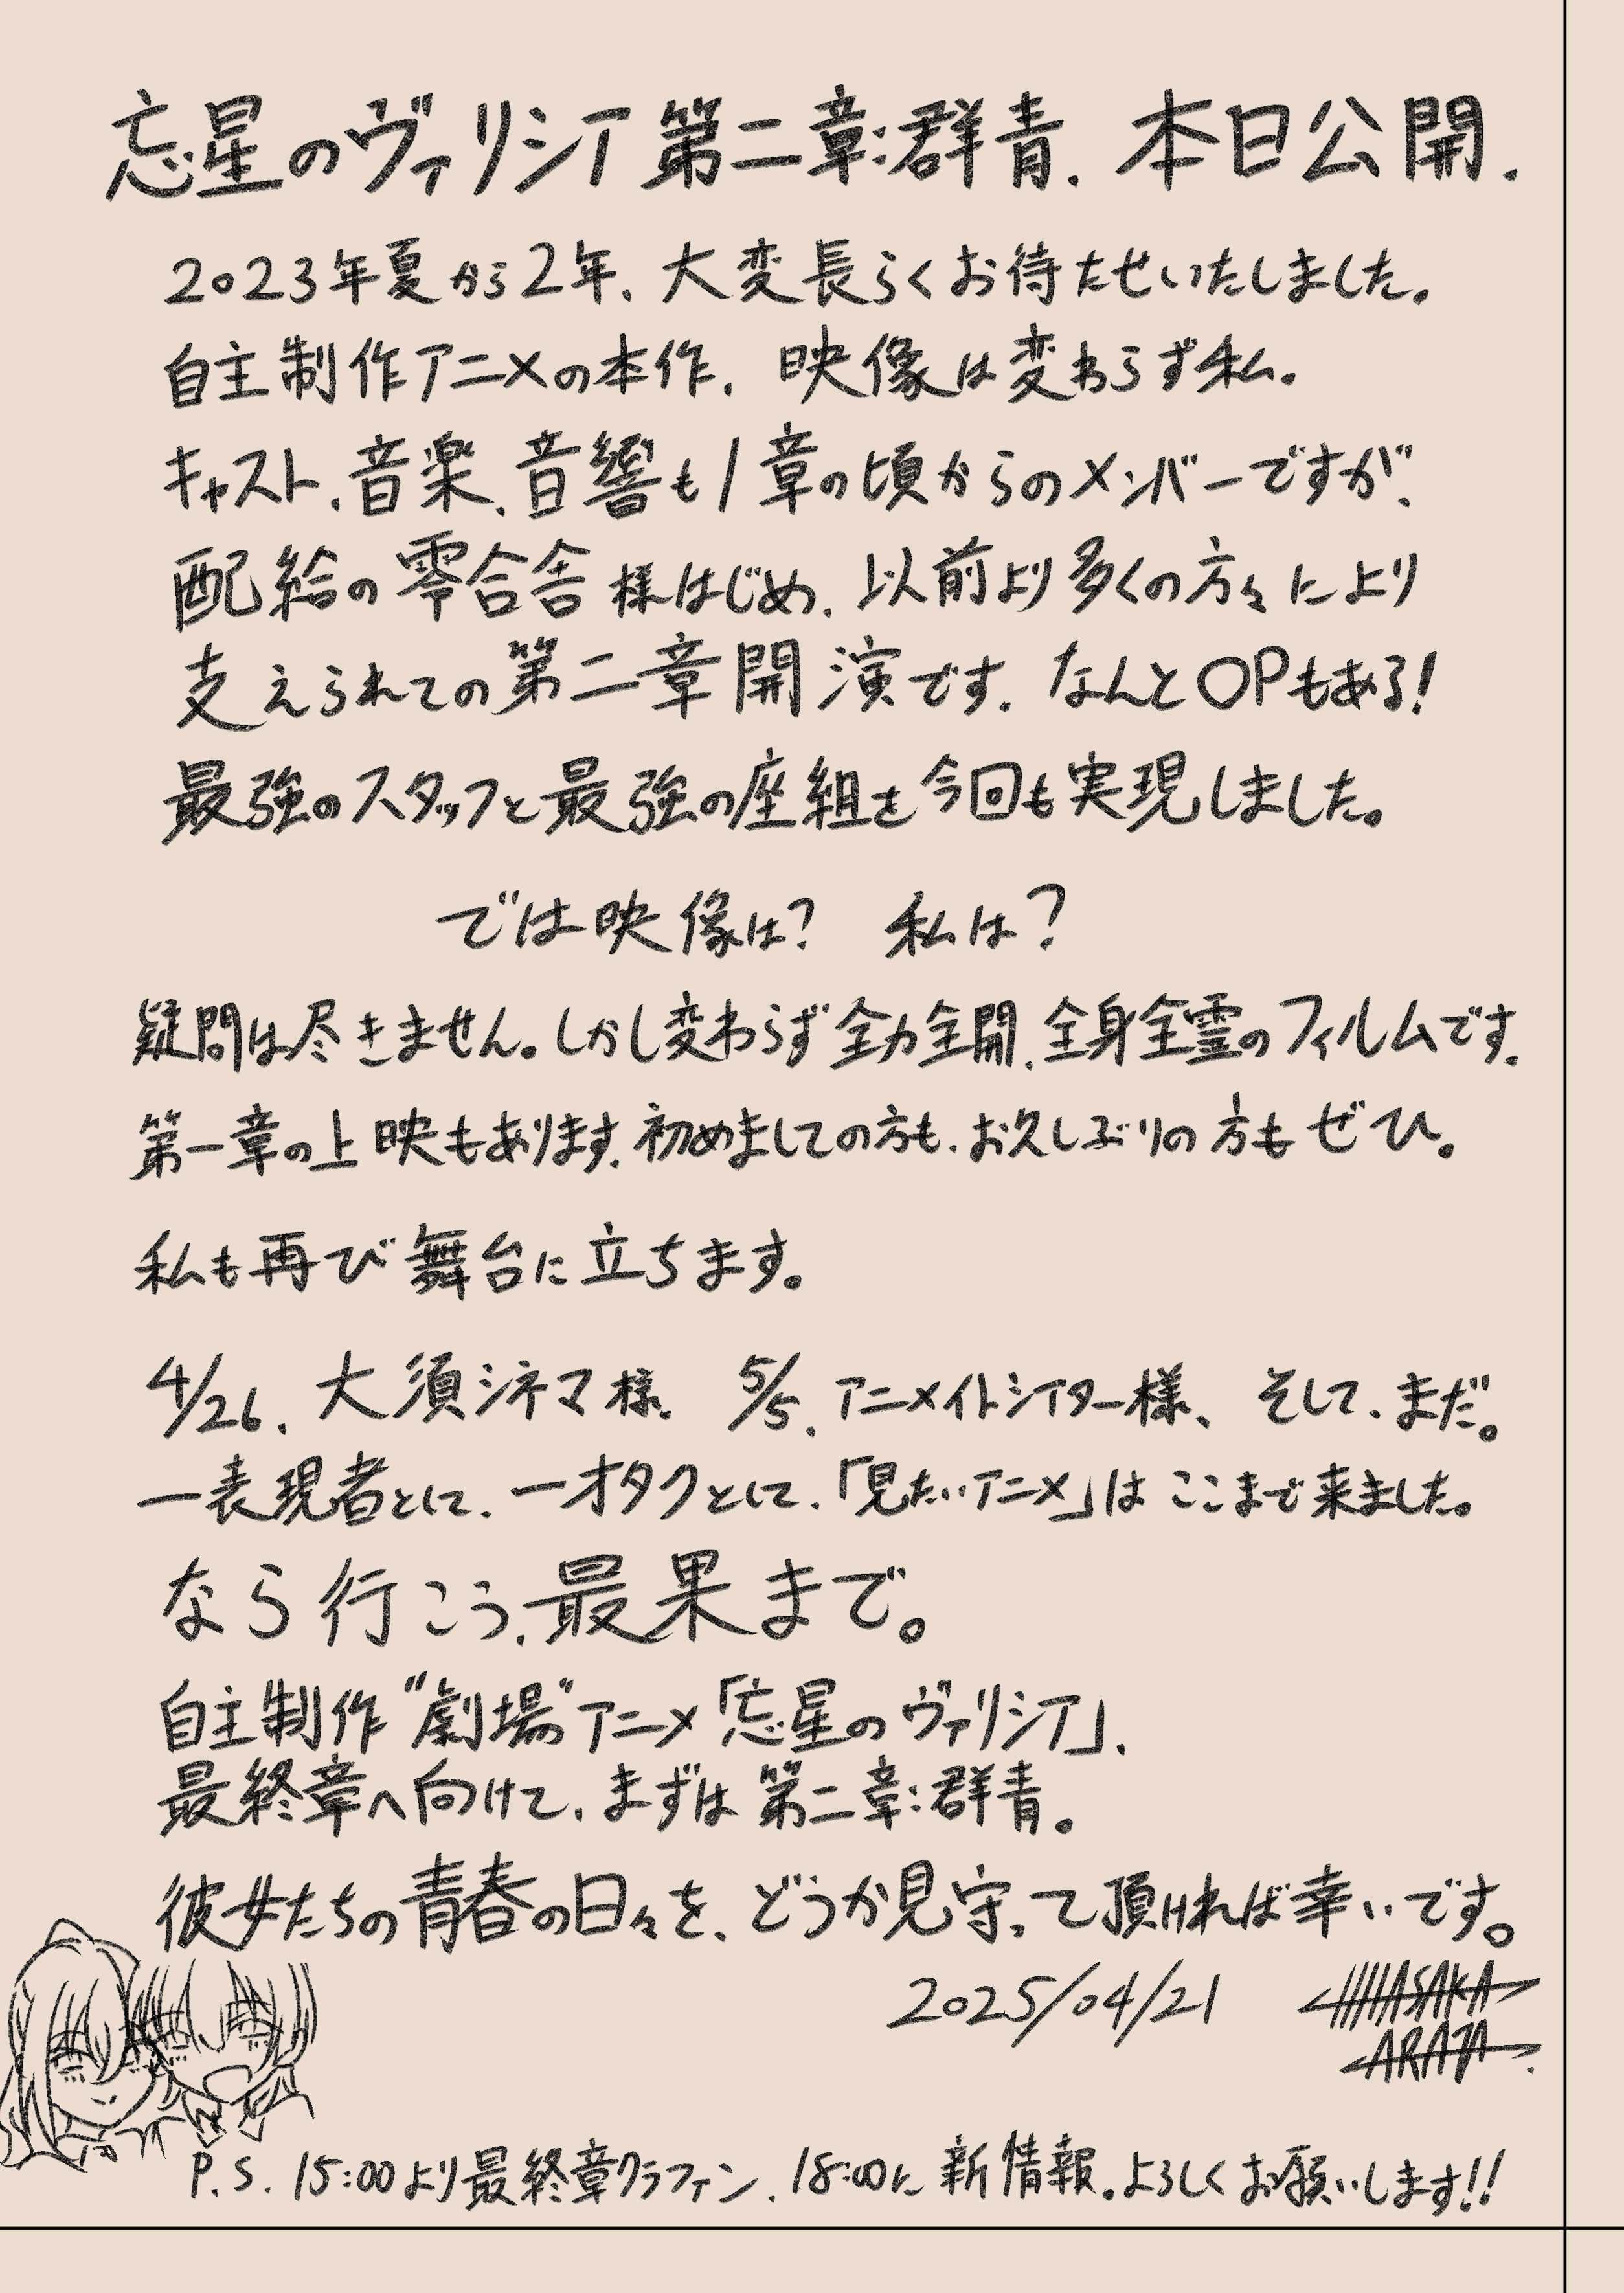 忘星のヴァリシア 第二章:群青、本日公開.
2023年夏から2年、大変長らくお待たせいたしました。
自主制作アニメの本作、映像は変わらず私。
キャスト、音楽、音響も1章の頃からのメンバーですが、
配給の零合舎様はじめ、以前より多くの方々により
支えられての第二章開演です. なんとOPもある!
最強のスタッフと最強の座組を今回も実現しました。
では映像は? 私は?
疑問は尽きません。しかし変わらず全力全開、全身全霊のフィルムです.
第一章の上映もあります、初めましての方も、お久しぶりの方もぜひ。
私も再び舞台に立ちます。
4/26、大須シネマ様。 5/5、アニメイトシアター様、 そして、まだ。
一表現者として、一オタクとして、「見たいアニメ」は ここまで来ました。
なら行こう、最果まで。
自主制作"劇場"アニメ「忘星のヴァリシア」、
最終章へ向けて、まずは第二章:群青。
彼女たちの青春の日々を、どうか見守って頂ければ幸いです。
2025/04/21
ARATA
P.S. 15:00より最終章クラファン、18:00に新情報。よろしくお願いします!!